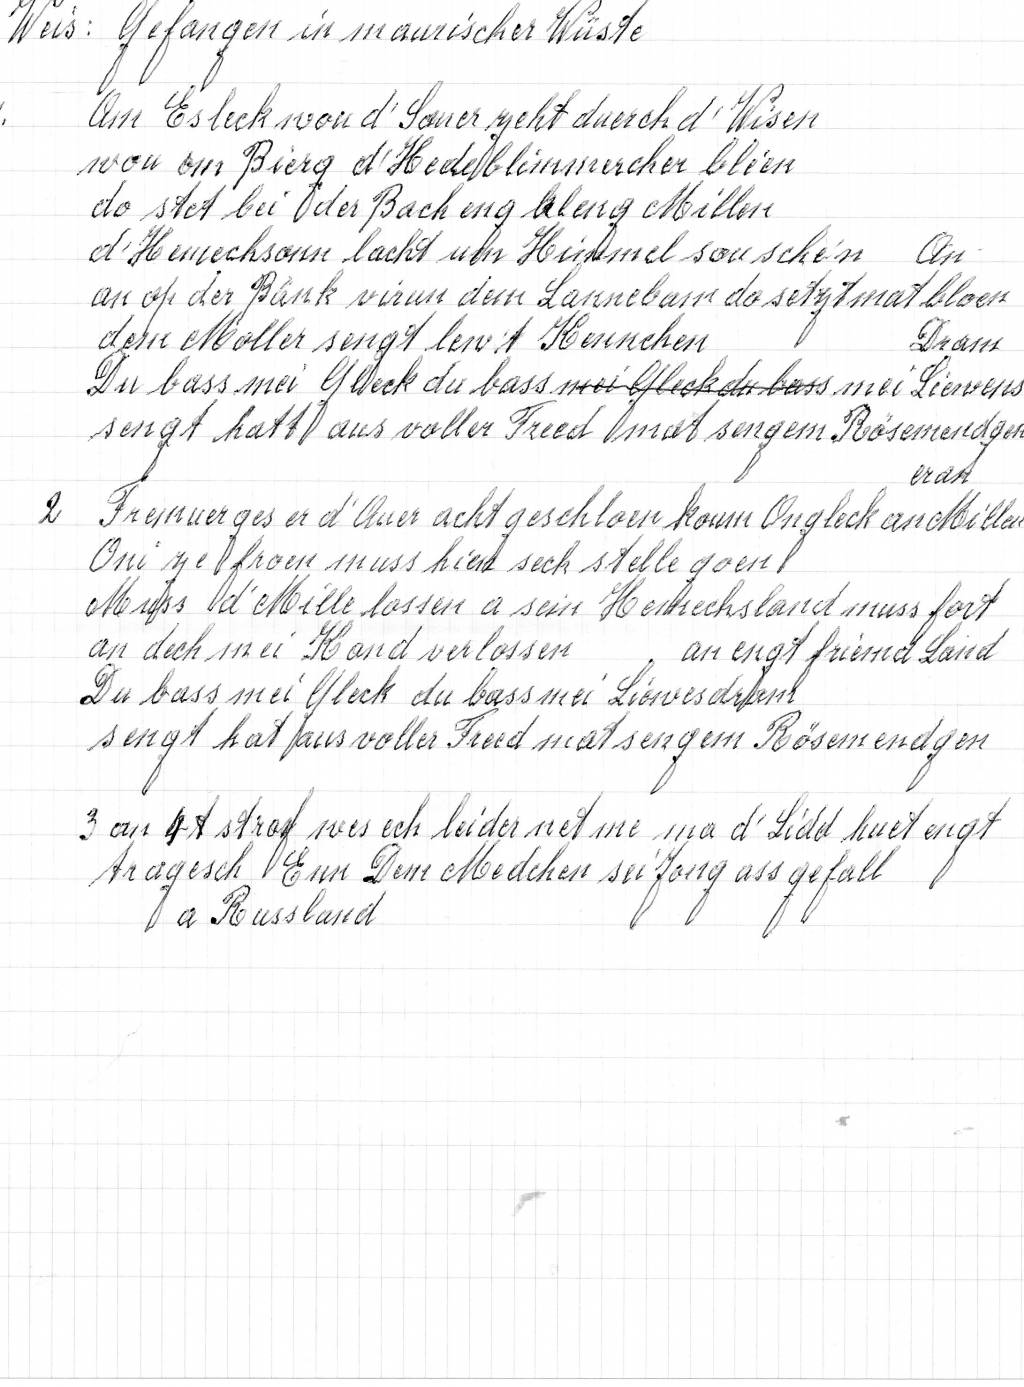 Weis: Gefangen in maurischer Wüste
Am Esleck wou d' Sauer zeht duerch d' Wisen
wou om Bierg d' Hedeblimmercher bléen
do stet bei der Bach eng kleng Millen
d' Hemechsonn lacht um Himmel sou schén An
an op der Bänk virun dem Lannebam do setzt mat bloen
dem Moller sengt lewt Hennchen Dram
Du bass mei Gleck du bass mei Gleck du bass mei Liewens
sengt hatt aus voller Freed mat sengem Rösemendgen
eran
2 Fremuerges er d' Auer acht geschloen koum Ongleck an Millen
Oni ze froen muss hien seck stelle goen
Muss d' Mille lossen a sein Hemechsland muss fort
an dech mei Kand verlossen an engt friemd Land
Du bass mei Gleck du bass mei Liewesdram
sengt hat aus voller Freed mat sengem Rösemendgen
3 an 4t strof wes ech leider net me ma d' Lidd huet engt
tragesch Enn Dem Medchen sei Jong ass gefall
a Russland